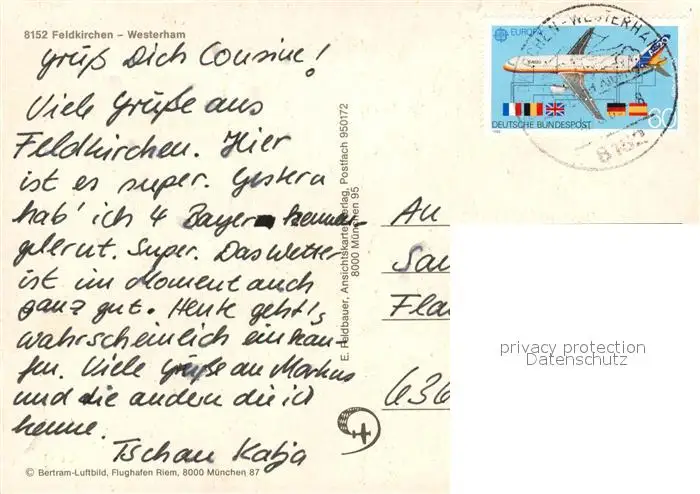 8152 Feldkirchen – Westerham
gruß Dich Cousine!
Viele Grüße aus
Feldkirchen. Hier
ist es super. Gestern
hab' ich 4 Bayern kennen-
gelernt. Super. Das Wetter
ist im Moment auch
ganz gut. Heute geht's
wahrscheinlich einkau-
fen. Viele Grüße an Markus
und die andern die ich
kenne.
Tschau Katja
© Bertram-Luftbild, Flughafen Riem, 8000 München 87
E. Feldbauer, Ansichtskartenverlag, Postfach 950172
8000 München 95
EUROPA
A320
DEUTSCHE BUNDESPOST
60
CHEN-WESTERHAM
8152
An
Sau
Fla
636
privacy protection
Datenschutz